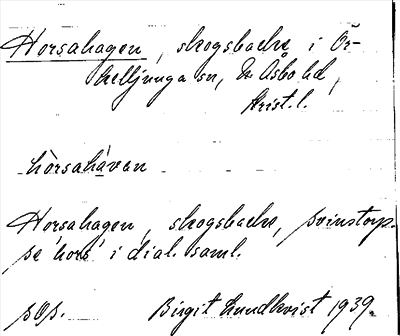 Horsahagen, skogsbacke, i Ör-
kelljunga sn, N. Åsbo hd,
Krist. l.
hòrsahàvan
Horsahagen, skogsbacke, Svinstorp.
se hors i dial. saml.
Birgit Lundkvist 1939.